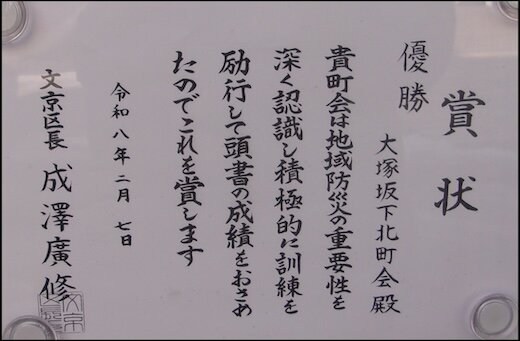 賞状
優勝
大塚坂下北町会殿
貴町会は地域防災の重要性を
深く認識し積極的に訓練を
励行して頭書の成績をおさめ
たのでこれを賞します
令和八年二月七日
文京区長 成澤廣修